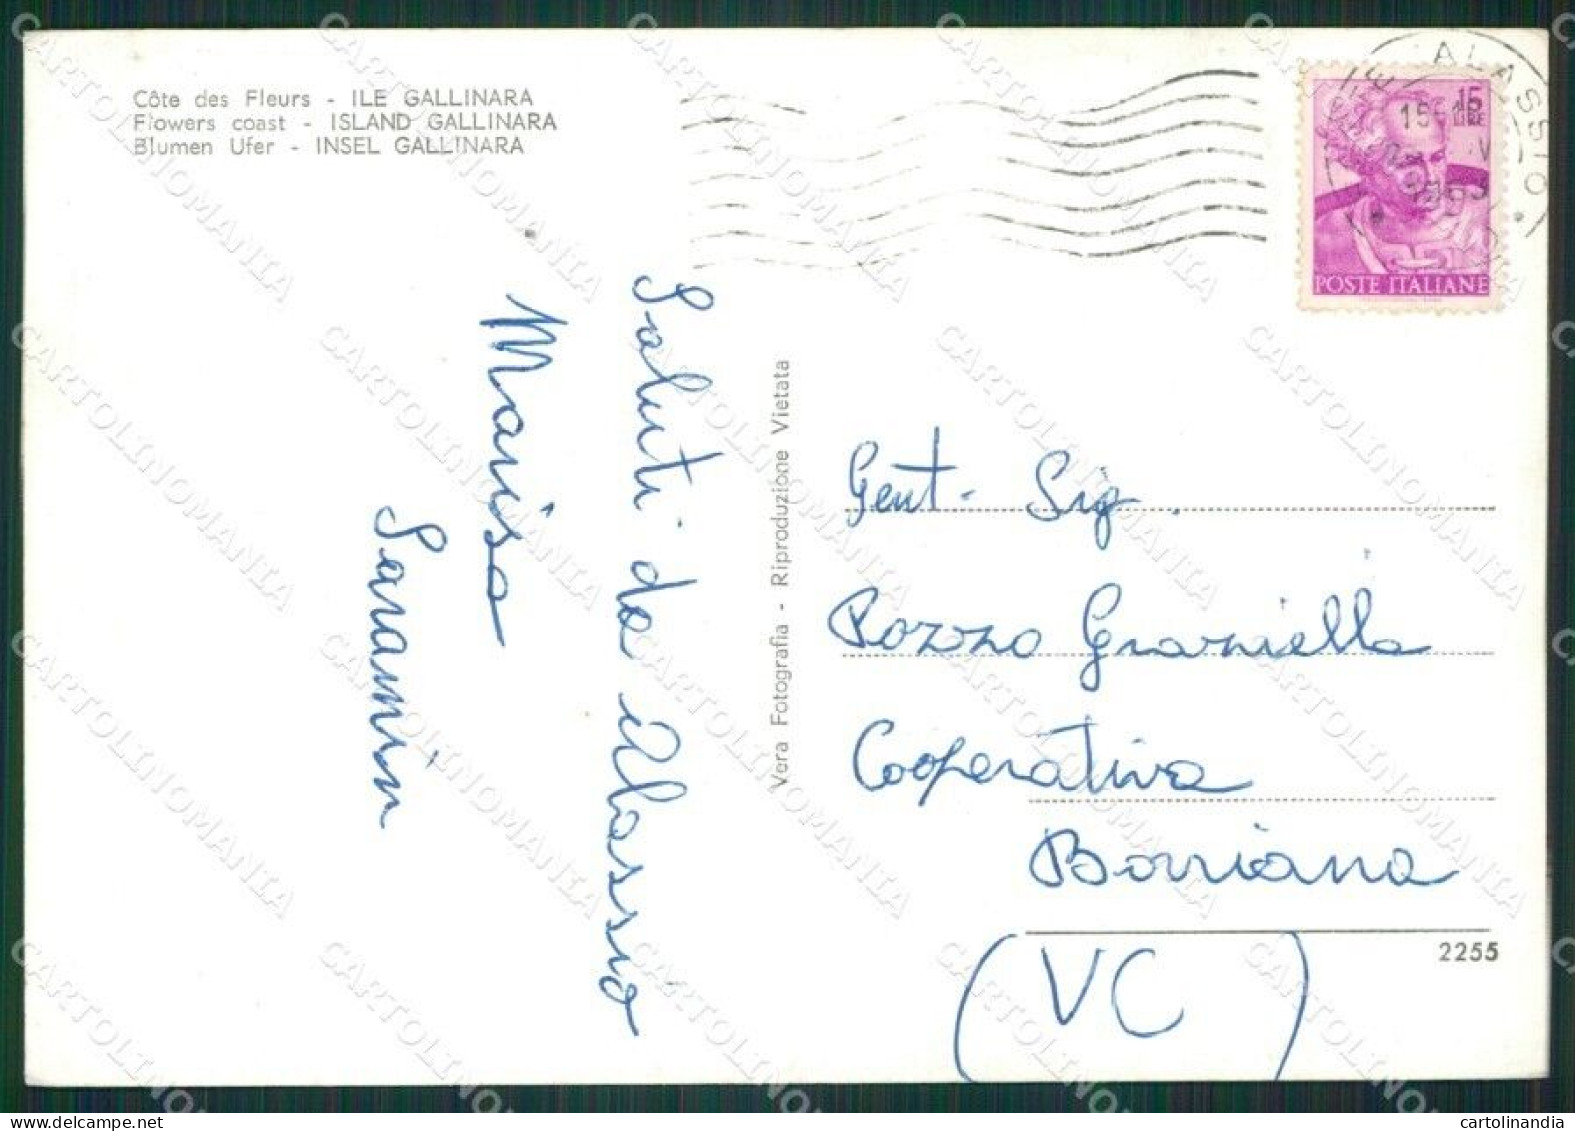 Côte des Fleurs - ILE GALLINARA
Flowers coast - ISLAND GALLINARA
Blumen Ufer - INSEL GALLINARA
ALASSIO
15 LIRE
POSTE ITALIANE
Saluti da Alassio
Marisa
Saramin
Vera Fotografia - Riproduzione Vietata
Gent. Sig.
Pozzo Graziella
Cooperativa
Borriana
(VC)
2255
CARTOLINOMANIA
cartolinandia